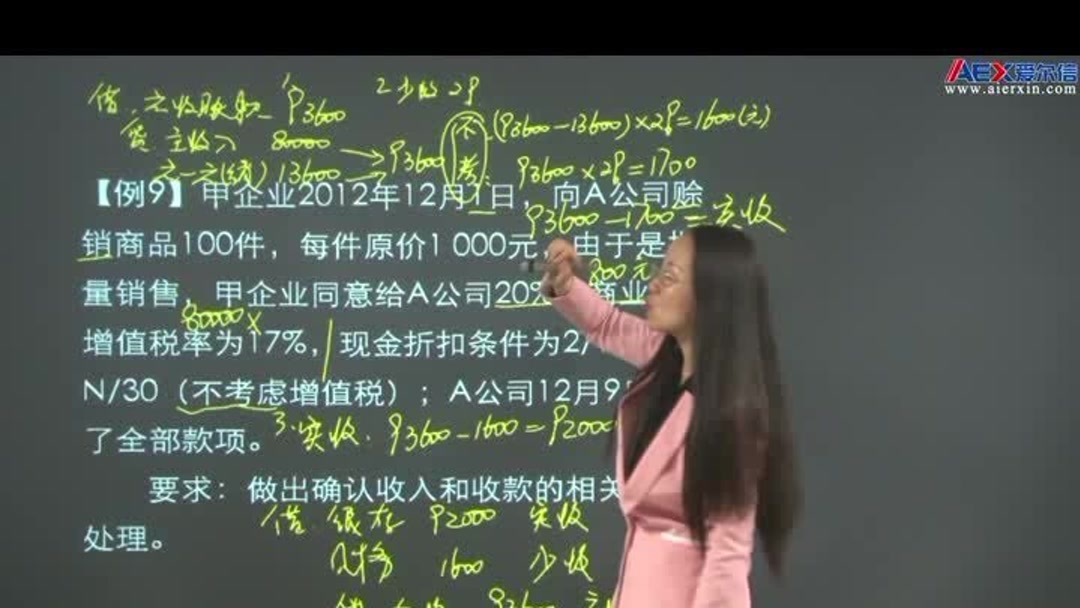 AEX爱尔信
www.aierxin.com
93600
主收入 80000
13600
93600
不考
(93600-13600)×2%=1600(元)
93600×2%=1700
【例9】甲企业2012年12月1日，向A公司赊
93600-1700=实收
销商品100件，每件原价1 000元，由于是
800元
量销售，甲企业同意给A公司20%商业
80000×
增值税率为17%，现金折扣条件为2/
N/30（不考虑增值税）；A公司12月9
3.实收.93600-1600=92000
了全部款项。
要求：做出确认收入和收款的相关
借 银存 92000 实收
处理。
财务 1600 少收
93600